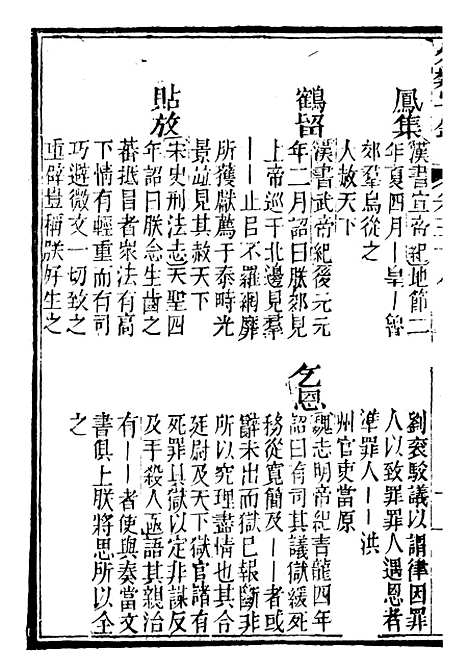 鳳集
漢書宣帝紀地節二
年夏四月｜皇｜魯
郊羣鳥從之
大赦天下
鶴留
漢書武帝紀後元元
年二月詔曰朕郊見
上帝巡于北邊見羣
｜｜止㠯不羅網靡
所獲獻薦于泰畤光
景並見其赦天下
貼放
宋史刑法志天聖四
年詔曰朕念生齒之
蕃抵冒者衆法有高
下情有輕重而有司
巧避微文一切致之
重辟豈稱朕好生之
劉袞駁議以謂律因罪
人以致罪罪人遇恩者
準罪人｜｜洪
州官吏當原
乞恩
魏志明帝紀青龍四年
詔曰有司其議獄緩死
務從寬簡及｜｜者或
辭未出而獄已報斷非
所以究理盡情也其令
廷尉及天下獄官諸有
死罪具獄以定非謀反
及手殺人亟語其親治
有｜｜者使與奏當文
書俱上朕將思所以全
之